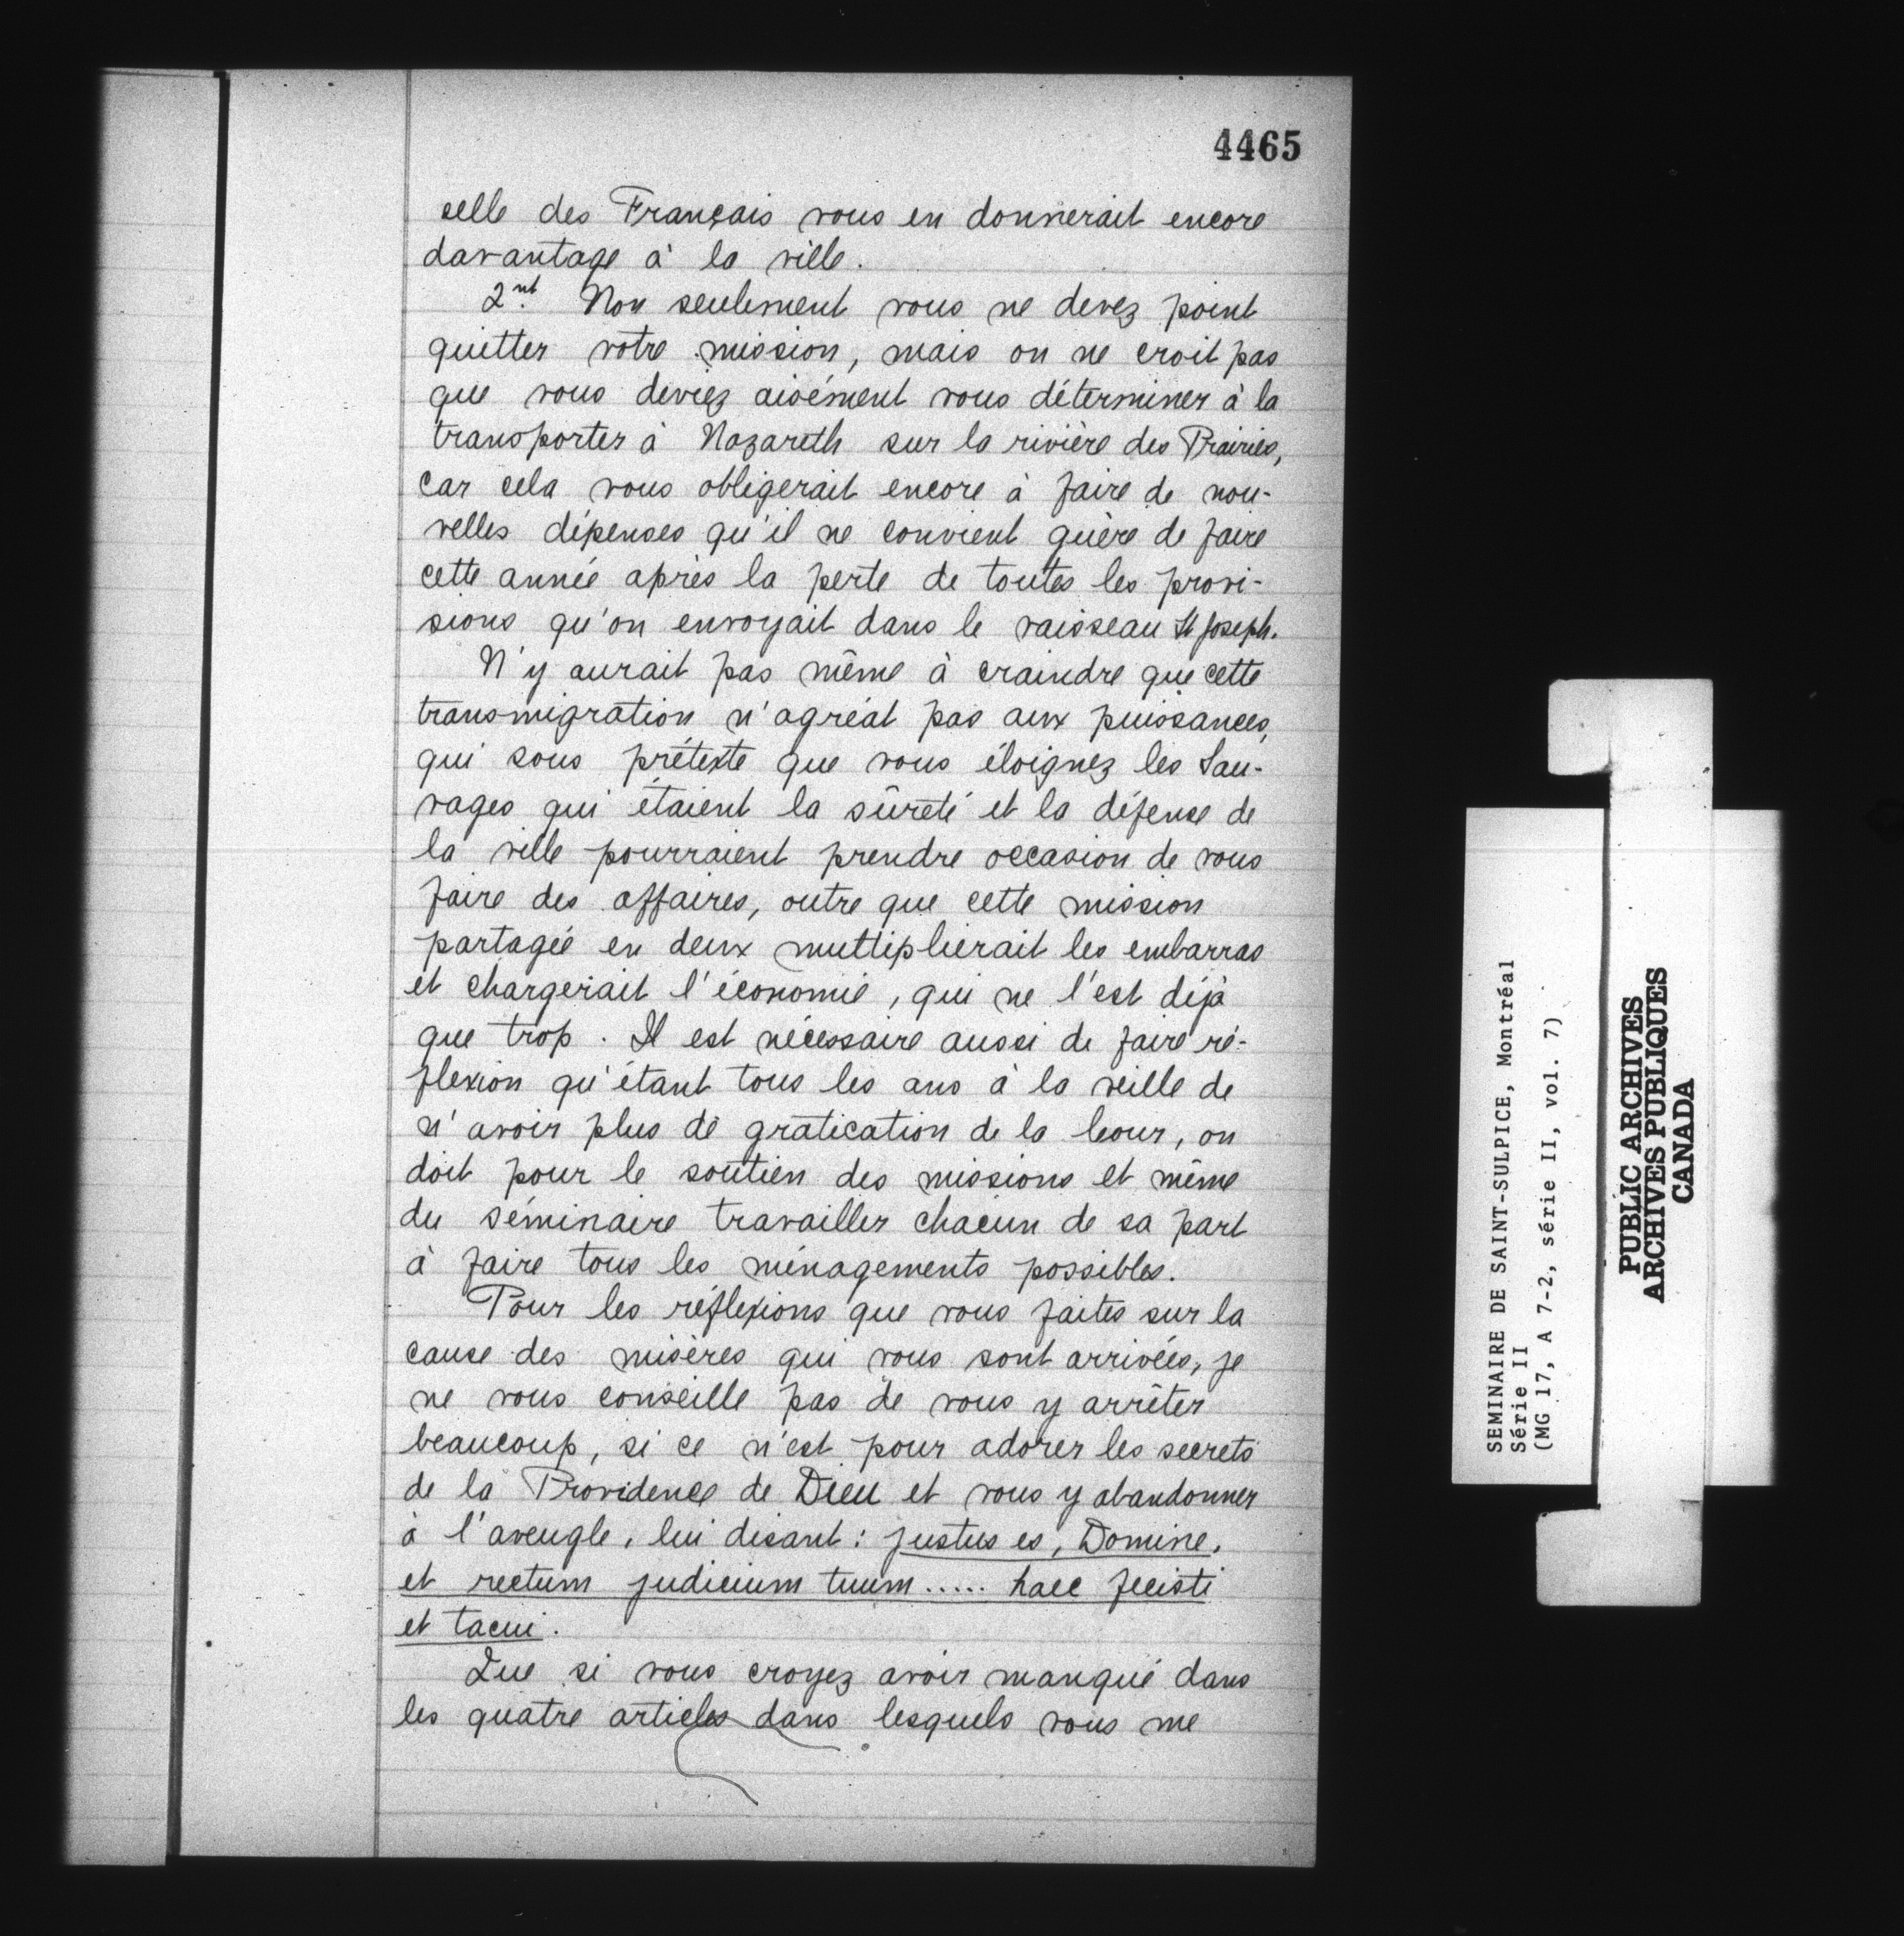 4465
celle des Français vous en donnerait encore
davantage à la ville.
2.nt Non seulement vous ne devez point
quitter votre mission, mais on ne croit pas
que vous deviez aisément vous déterminer à la
transporter à Nazareth sur la rivière des Prairies,
car cela vous obligerait encore à faire de nou-
velles dépenses qu'il ne convient guère de faire
cette année après la perte de toutes les provi-
sions qu'on envoyait dans le vaisseau St Joseph.
N'y aurait pas même à craindre que cette
transmigration n'agréat pas aux puissances,
qui sous prétexte que vous éloignez les Sau-
vages qui étaient la sûreté et la défense de
la ville pourraient prendre occasion de vous
faire des affaires, outre que cette mission
partagée en deux multiplierait les embarras
et chargerait l'économie, qui ne l'est déjà
que trop. Il est nécessaire aussi de faire ré-
flexion qu'étant tous les ans à la veille de
n'avoir plus de gratication de la Cour, on
doit pour le soutien des missions et même
du séminaire travailler chacun de sa part
à faire tous les ménagements possibles.
Pour les réflexions que vous faites sur la
cause des misères qui vous sont arrivées, je
ne vous conseille pas de vous y arrêter
beaucoup, si ce n'est pour adorer les secrets
de la Providence de Dieu et vous y abandonner
à l'aveugle, lui disant : justus es, Domine,
et rectum judicium tuum ..... haec fecisti
et tacui.
Que si vous croyez avoir manqué dans
les quatre articles dans lesquels vous me
SEMINAIRE DE SAINT-SULPICE, Montréal
Série II
(MG 17, A 7-2, série II, vol. 7)
PUBLIC ARCHIVES
ARCHIVES PUBLIQUES
CANADA